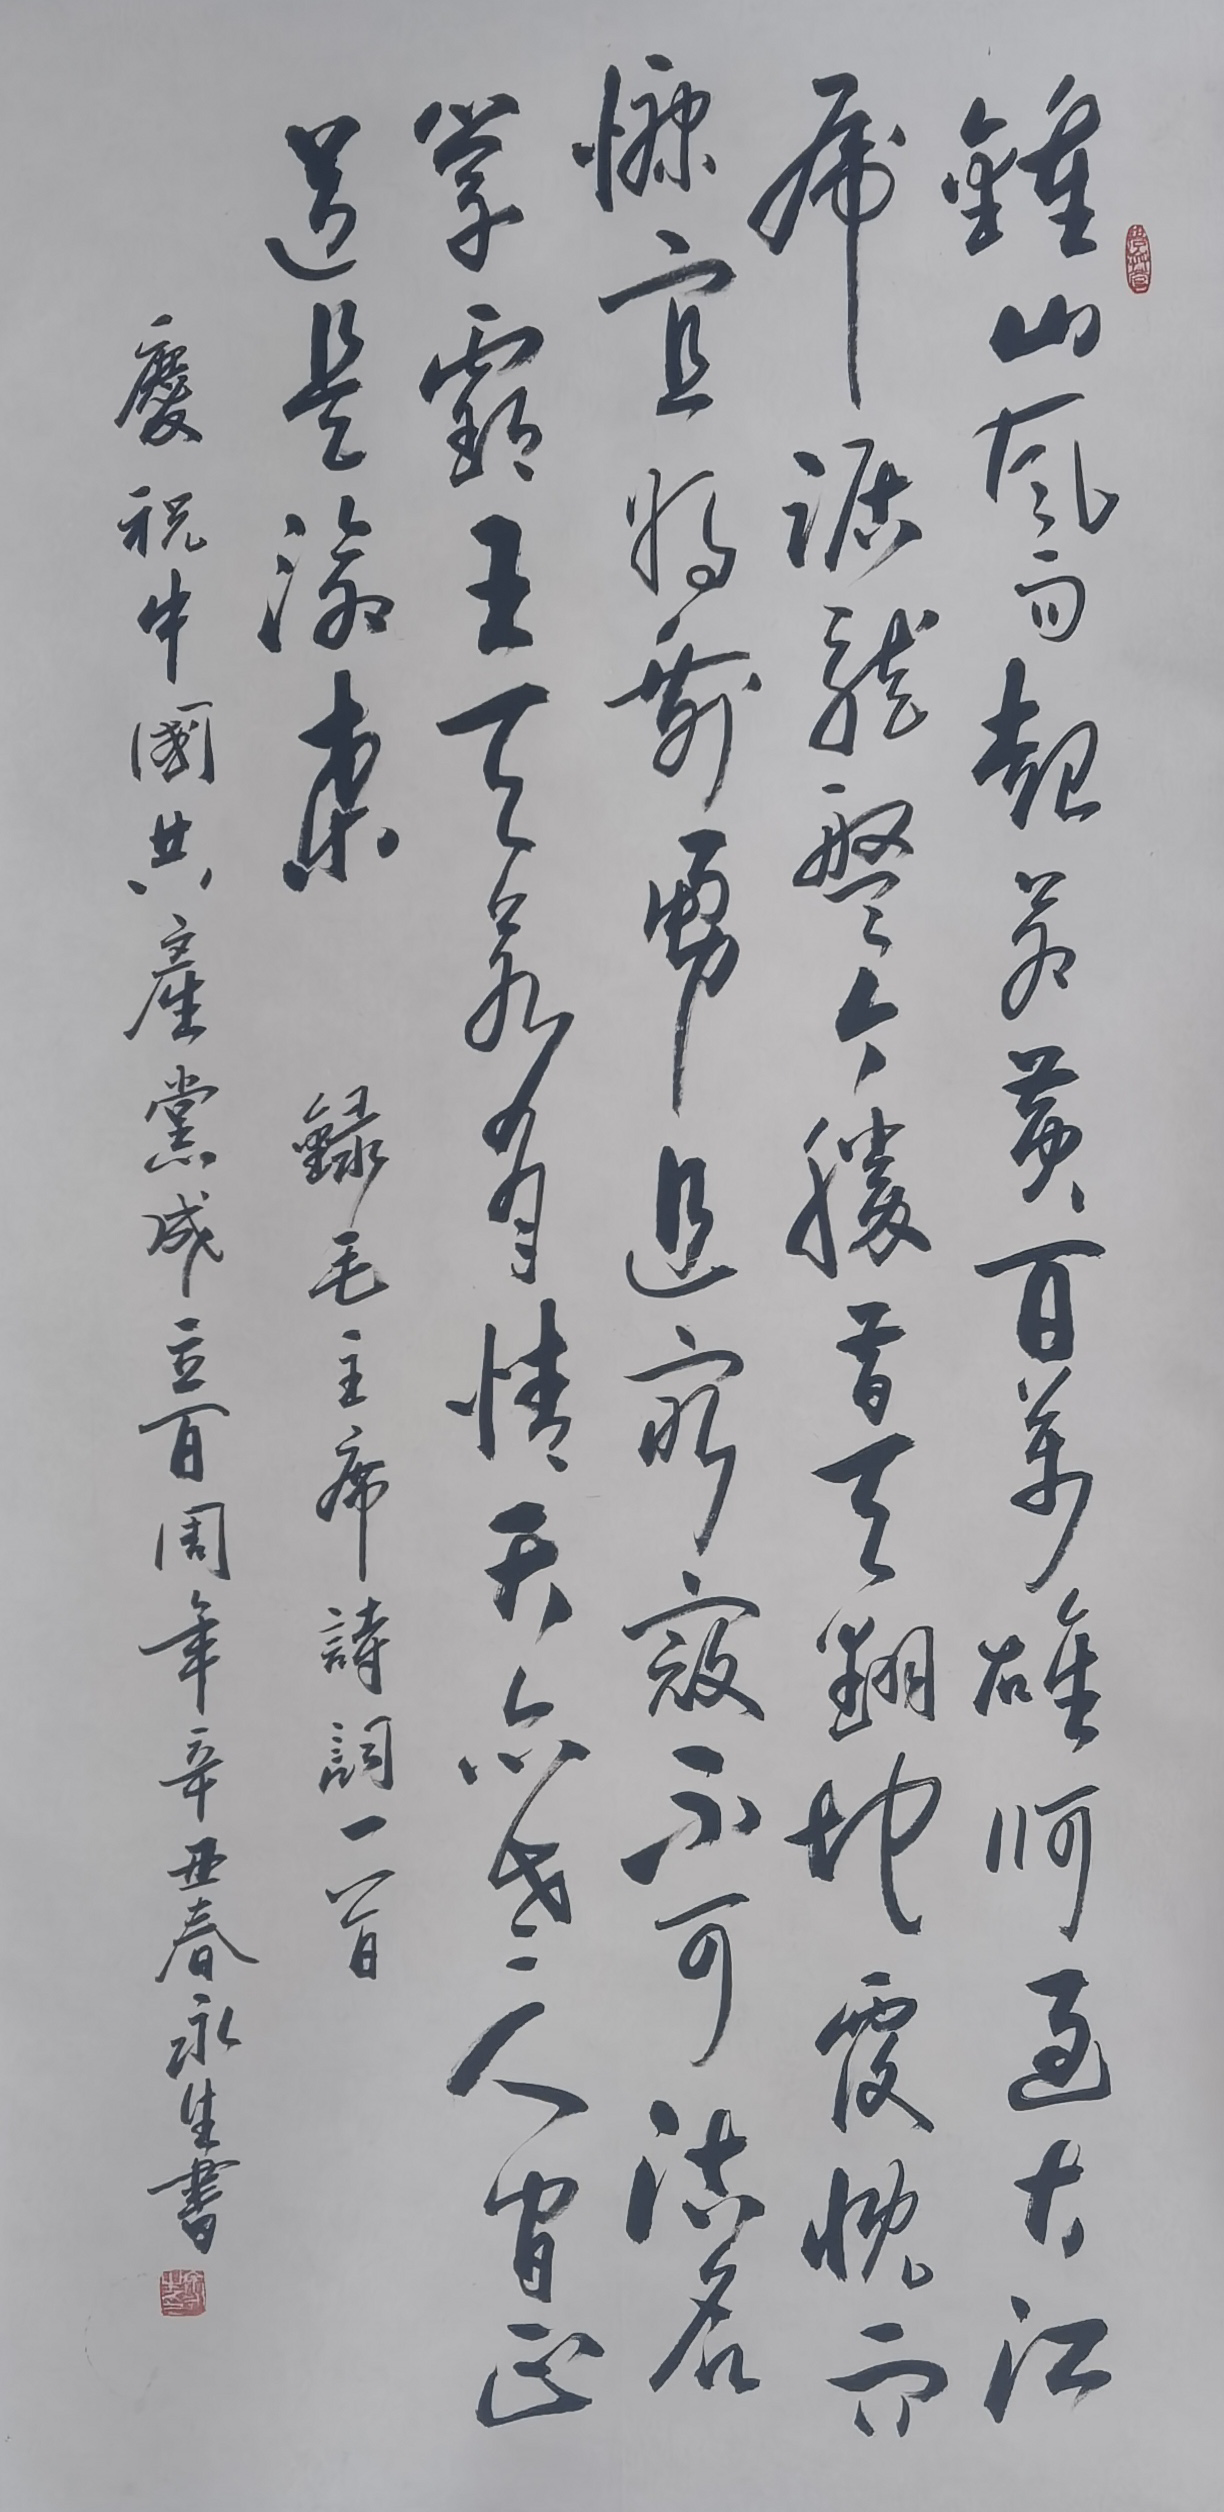 鍾山風雨起蒼黃百萬雄師過大江
虎踞龍盤今勝昔天翻地覆慨而
慷宜將剩勇追窮寇不可沽名
學霸王天若有情天亦老人間正
道是滄桑 錄毛主席詩詞一首
慶祝中國共產黨成立百周年辛丑春永生書